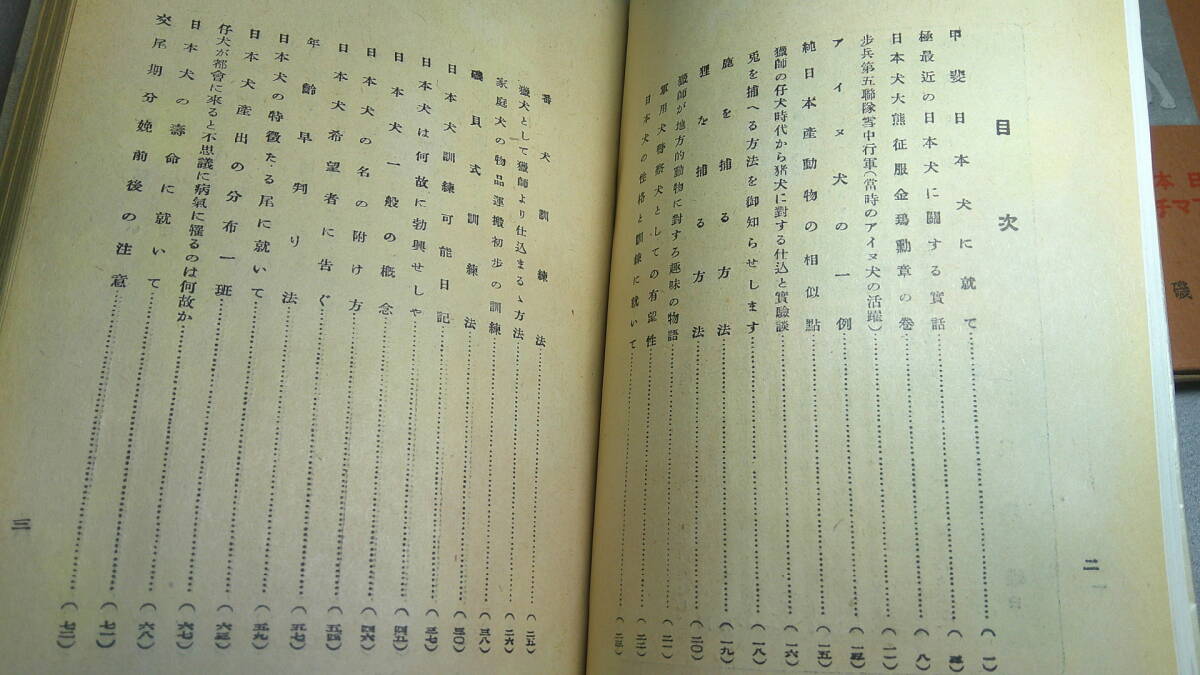 目次
甲斐日本犬に就て(一)
極最近の日本犬に關する實話
日本犬大熊征服金鵄勳章の巻(八)
歩兵第五聯隊雪中行軍(當時のアイヌ犬の活躍)(一一)
アイヌ犬の一例
純日本産動物の相似點(一五)
獵師の仔犬時代から猪犬に對する仕込と實驗談(一六)
兎を捕へる方法を御知らせします(一八)
鹿を捕る方法(一九)
狸を捕る方法(二〇)
獵師が地方的動物に對する趣味の物語(二一)
軍用犬警察犬としての有望性(二二)
日本犬の性格と訓練に就いて
二
番犬訓練法(二五)
獵犬として獵師より仕込まるゝ方法(二六)
家庭犬の物品運搬初歩の訓練(二八)
磯貝式訓練法(三〇)
日本犬訓練可能日記(三七)
日本犬は何故に勃興せしや(四五)
日本犬一般の概念(四六)
日本犬の名の附け方(五四)
日本犬希望者に告ぐ(五七)
年齡早判り法(五九)
日本犬の特徴たる尾に就いて(六五)
日本犬産出の分布一班(六七)
仔犬が都會に來ると不思議に病氣に罹るのは何故か(六八)
日本犬の壽命に就いて(七一)
交尾期分娩前後の注意(七二)
三
磯